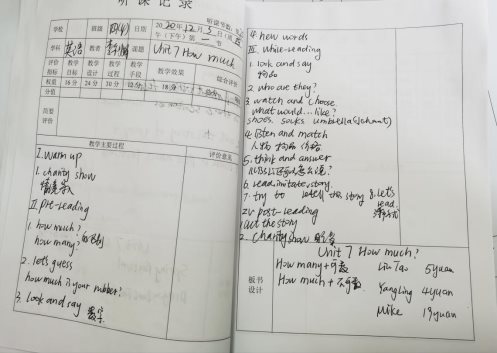 听课记录
学校 班级 四(4) 日期 2020年12月3日(第 周)
午(下午)第一节
学科 英语 教者 课题 Unit 7 How much
评价指标 教学目标 教学设计 教学过程 教学手段 教学效果 综合评价
权重 16分 24分 30分 12分 18分
分值
简要评价
教学主要过程 评价意见
I. warm up
1. charity show
情境导入
II. pre-reading
1. how much?
how many? 的区别
2. let's guess
how much is your rubber?
3. look and say 数字
4. new words
III. while-reading
1. look and say
物品
2. who are they?
3. watch and choose.
what would...like?
shoes. socks umbrella
4. listen and match
人物 物品 价格
5. think and answer
6. read, imitate story.
7. try to retell the story 8. Let's
read.
IV post-reading
1. act the story
2. Charity show
板书设计
Unit 7 How much?
How many + 可数 Liu Tao 5 yuan
How much + 不可数 Yang Ling 4 yuan
Mike 19 yuan